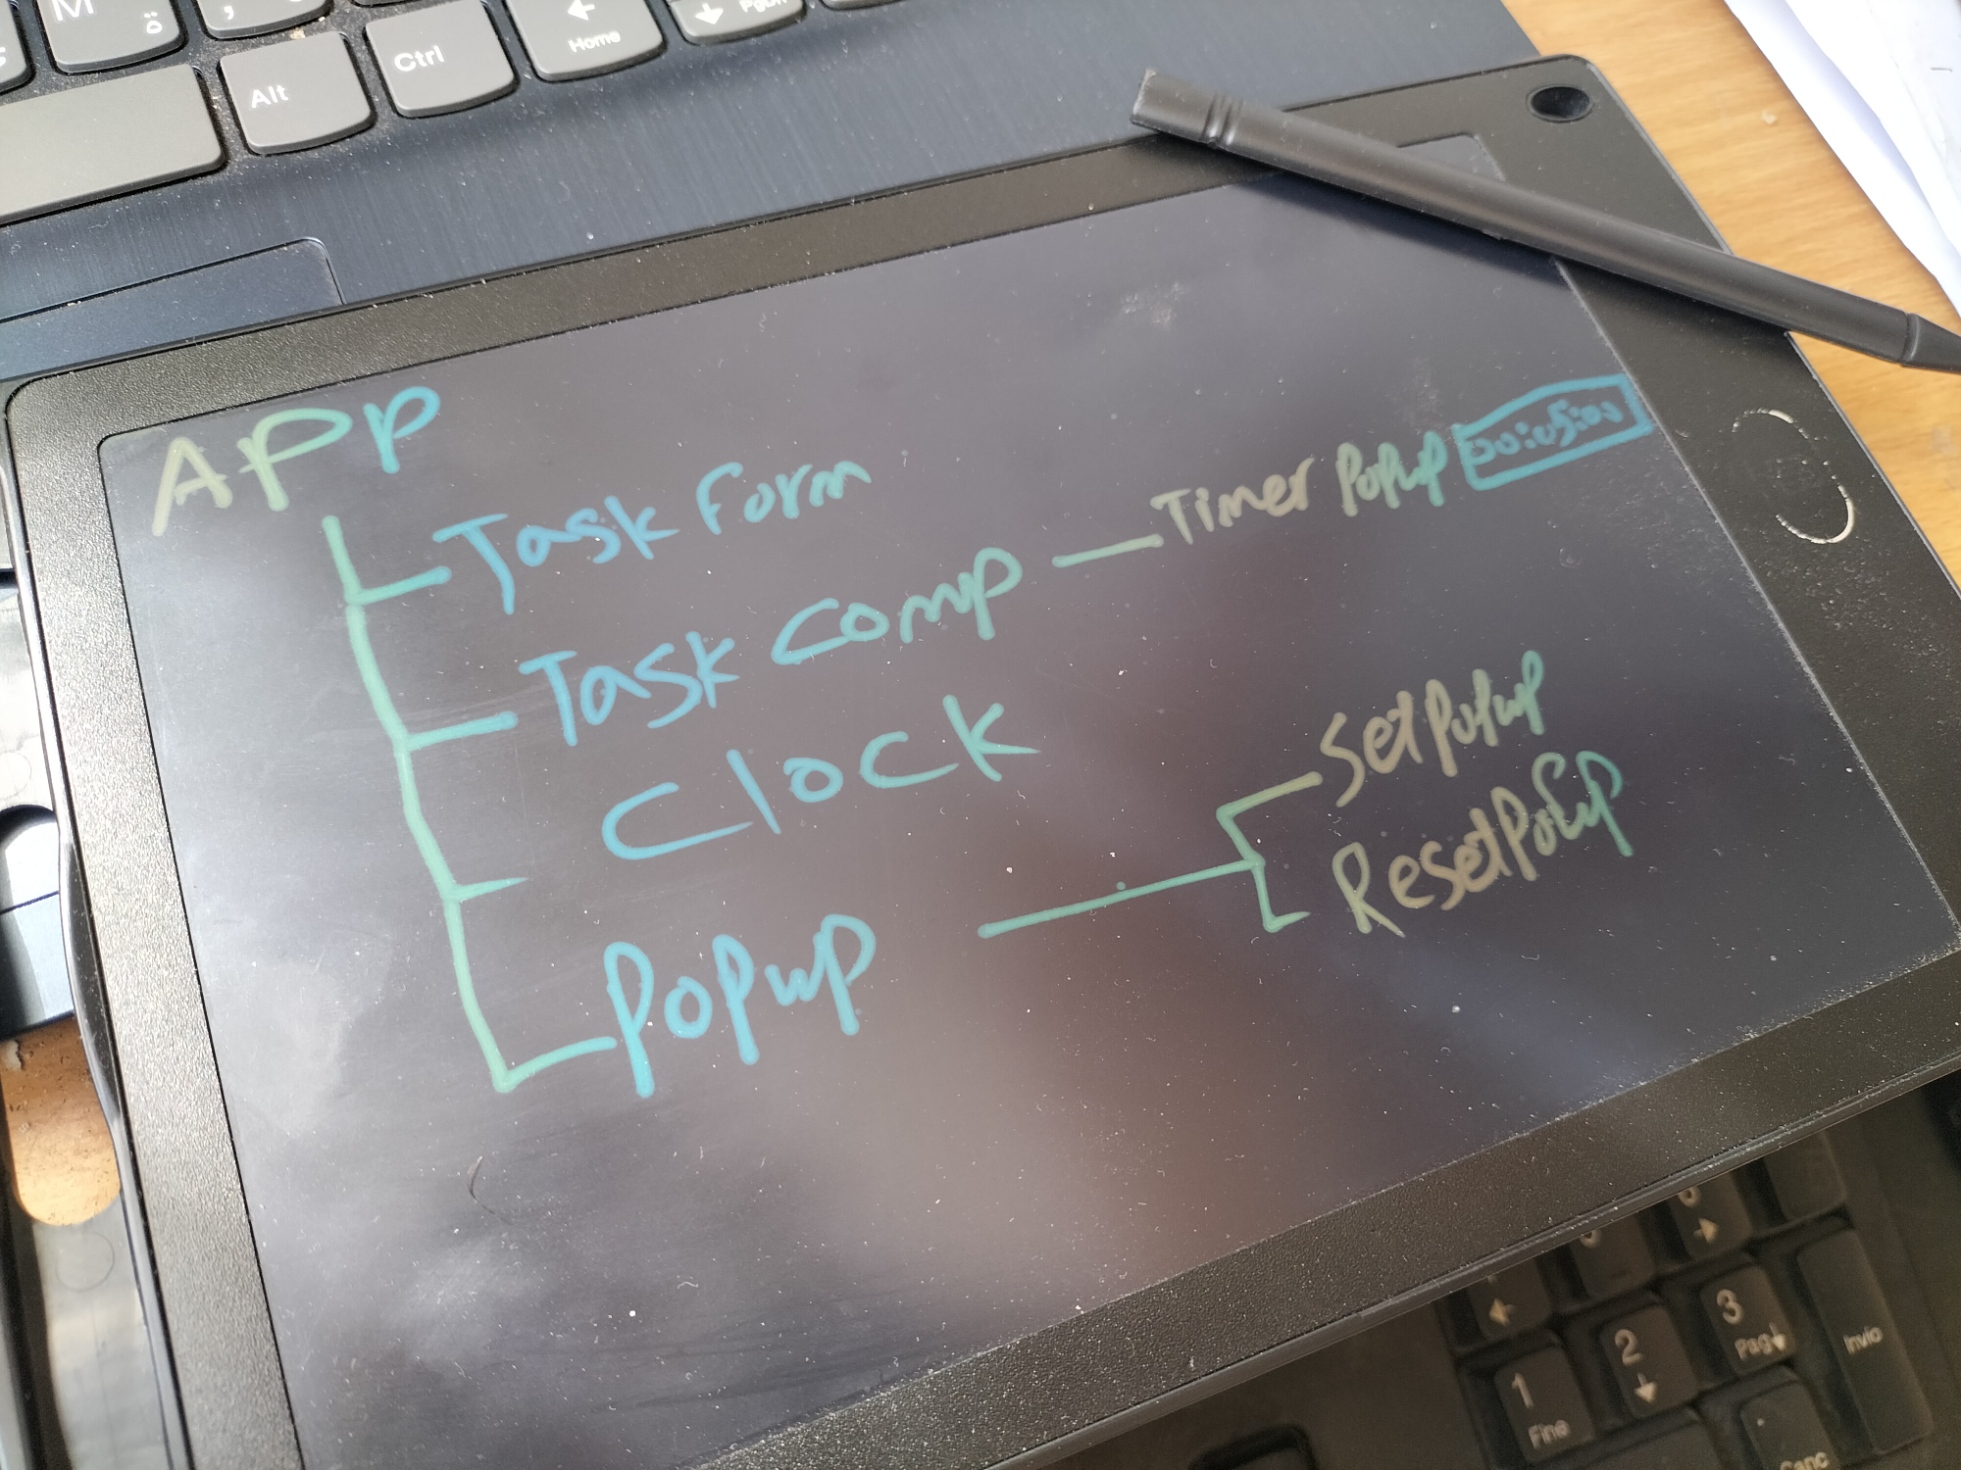 M
Alt
Ctrl
Home
PgDn
APP
Task Form
Task Comp
Timer Popup
00:05:00
Clock
Popup
SetPopup
ResetPopup
6
3
Pag
2
1
Fine
Invio
Canc